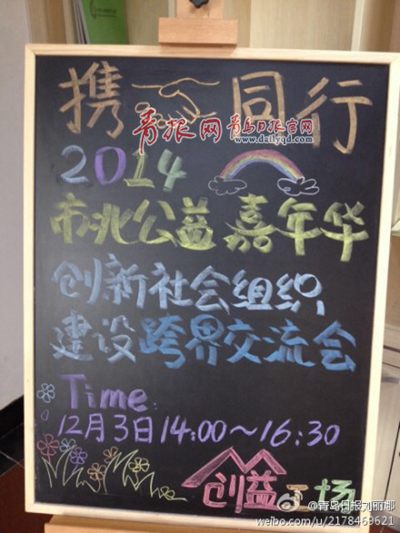 携 同行
青报网 青岛日报官网
www.dailyqd.com
2014
市北公益嘉年华
创新社会组织
建设跨界交流会
Time:
12月3日14:00～16:30
创益工场
@青岛日报刘丽郡
weibo.com/u/2178469621